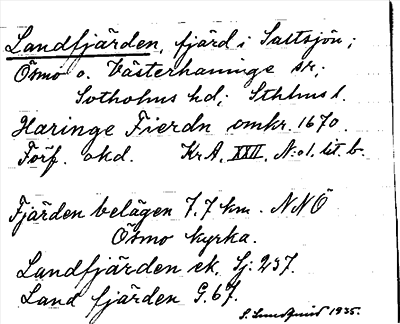 Landfjärden, fjärd i Saltsjön;
Ösmo o. Västerhaninge sn;
Sotholms hd; Sthlms l.
Haringe Fierdn omkr. 1670.
Förf. okd. KrA, XXII, N:o 1. lit b.
Fjärden belägen 7.7 km. NNÖ
Ösmo kyrka.
Landfjärden ek. Sj: 237.
Land fjärden G. 67.
S. Lundquist 1935.